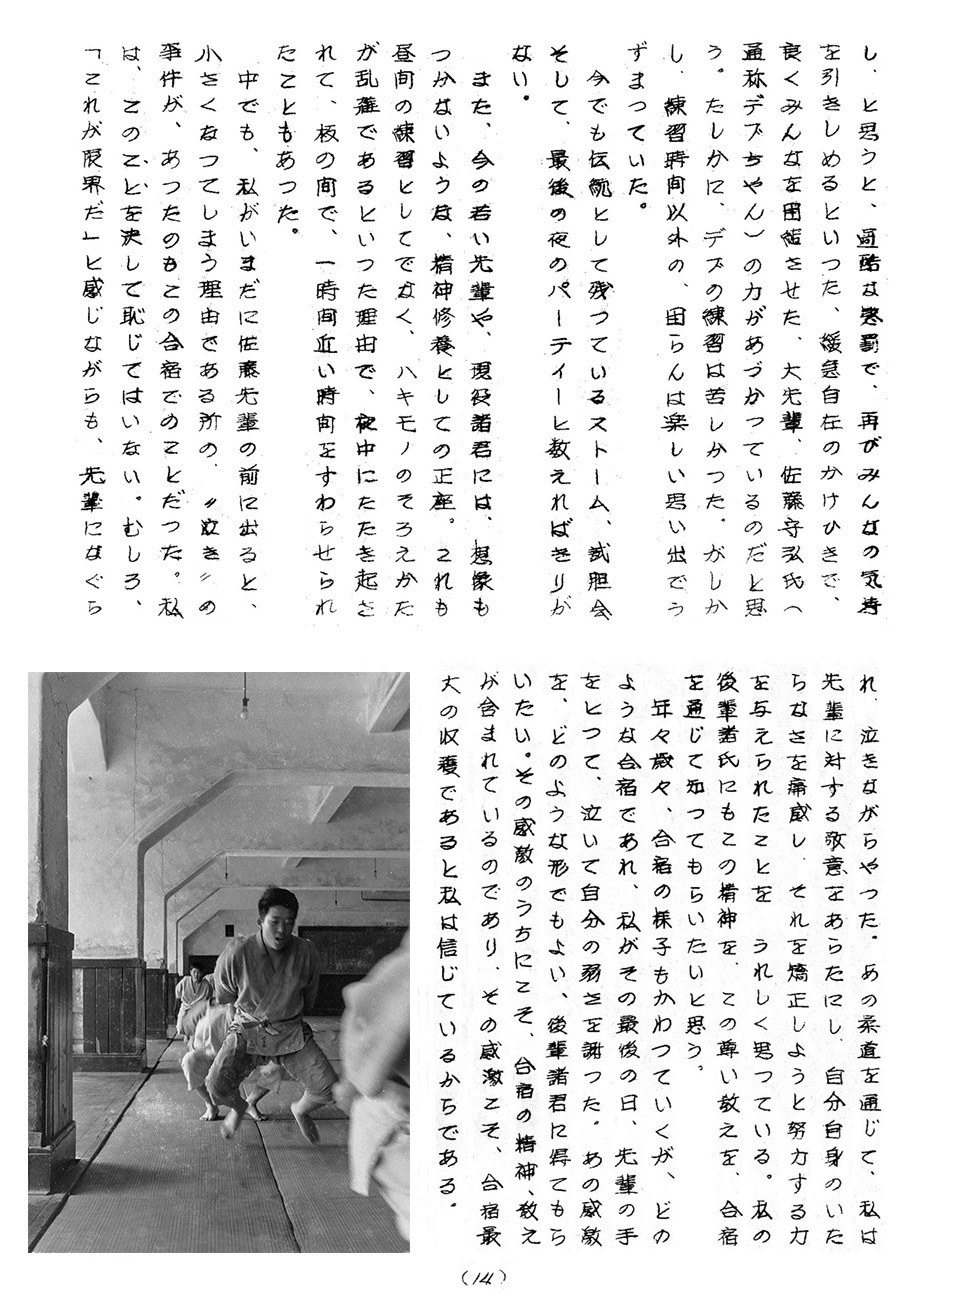 し、と思うと、過酷な懲罰で、再びみんなの気持
を引きしめるといつた、緩急自在のかけひきで、
良くみんなを団結させた、大先輩、佐藤守弘氏へ
通称デブちやん)の力があづかつているのだと思
う。たしかに、デブの練習は苦しかつた。がしか
し、練習時间以外の、団らんは楽しい思い出でう
ずまつていた。
今でも伝統として残つているストーム、試胆会
そして、最後の夜のパーテイーと数えればきりが
ない。
また、今の若い先輩や、現役諸君には、想像も
つかないような、精神修養としての正座。これも
昼间の練習としてでなく、ハキモノのそろえかた
が乱雑であるといつた理由で、夜中にたたき起さ
れて、板の间で、一時间近い時间をすわらせられ
たこともあつた。
中でも、私がいまだに佐藤先輩の前に出ると、
小さくなつてしまう理由である所の、〃泣き〃の
事件が、あつたのもこの合宿でのことだつた。私
は、このことを決して恥じてはいない。むしろ、
「これが限界だ」と感じながらも、先輩になぐら
れ、泣きながらやつた。あの柔道を通じて、私は
先輩に対する敬意をあらたにし、自分自身のいた
らなさを痛感し、それを矯正しようと努力する力
を与えられたことを うれしく思つている。私の
後輩諸氏にもこの精神を、この尊い教えを、合宿
を通じて知つてもらいたいと思う。
年々歳々、合宿の様子もかわつていくが、どの
ような合宿であれ、私がその最後の日、先輩の手
をとつて、泣いて自分の弱さを謝つた。あの感激
を、どのような形でもよい、後輩諸君に得てもら
いたい。その感激のうちにこそ、合宿の精神、教え
が含まれているのであり、その感激こそ、合宿最
大の収穫であると私は信じているからである。
(14)